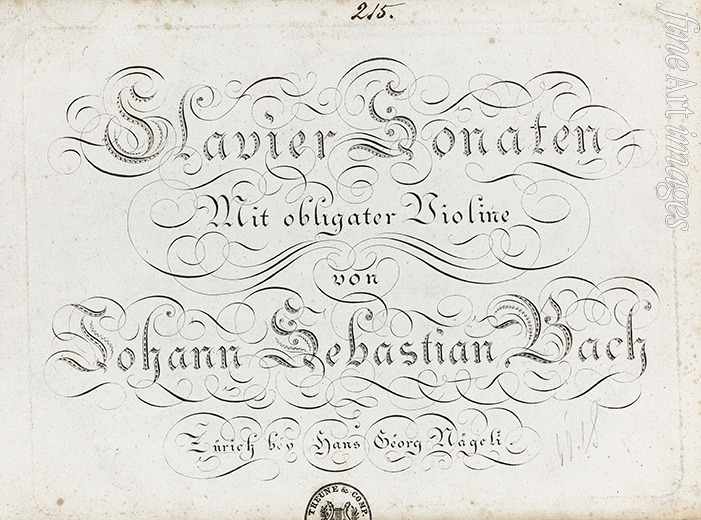 215.
Clavier Sonaten
Mit obligater Violine
von
Johann Sebastian Bach
Zürich bey Hans Georg Nägeli.
THEUNE & COMP.
fineArtimages